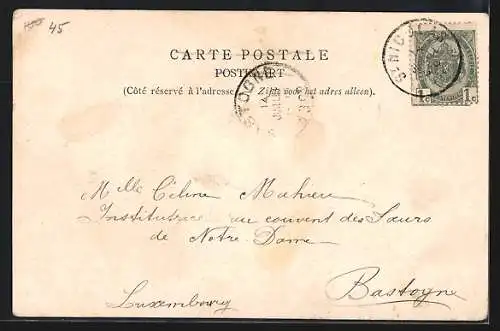 45
CARTE POSTALE
POSTKAART
(Côté réservé à l'adresse. Zijde voor het adres alleen.)
1c 1c
Melle Céline Mahieu
Institutrice au couvent des Sœurs
de Notre-Dame
Bastogne
Luxembourg